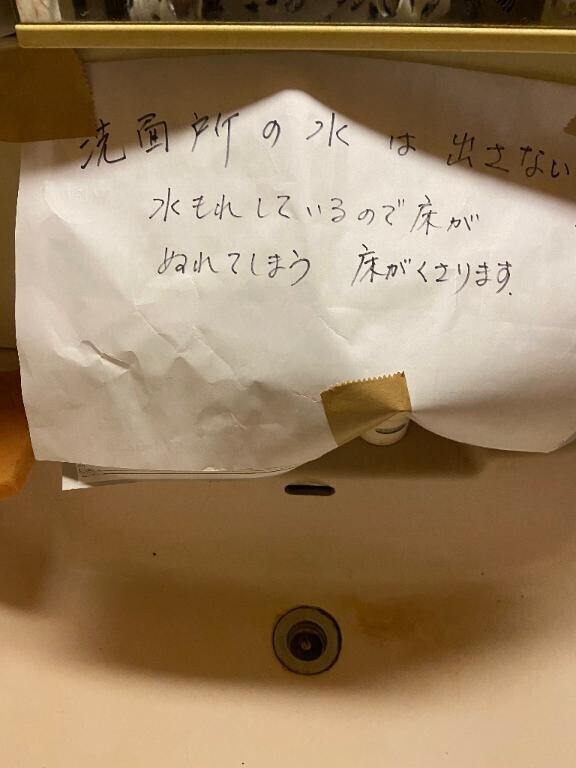 洗面所の水は出さない
水もれしているので床が
ぬれてしまう 床がくさります.